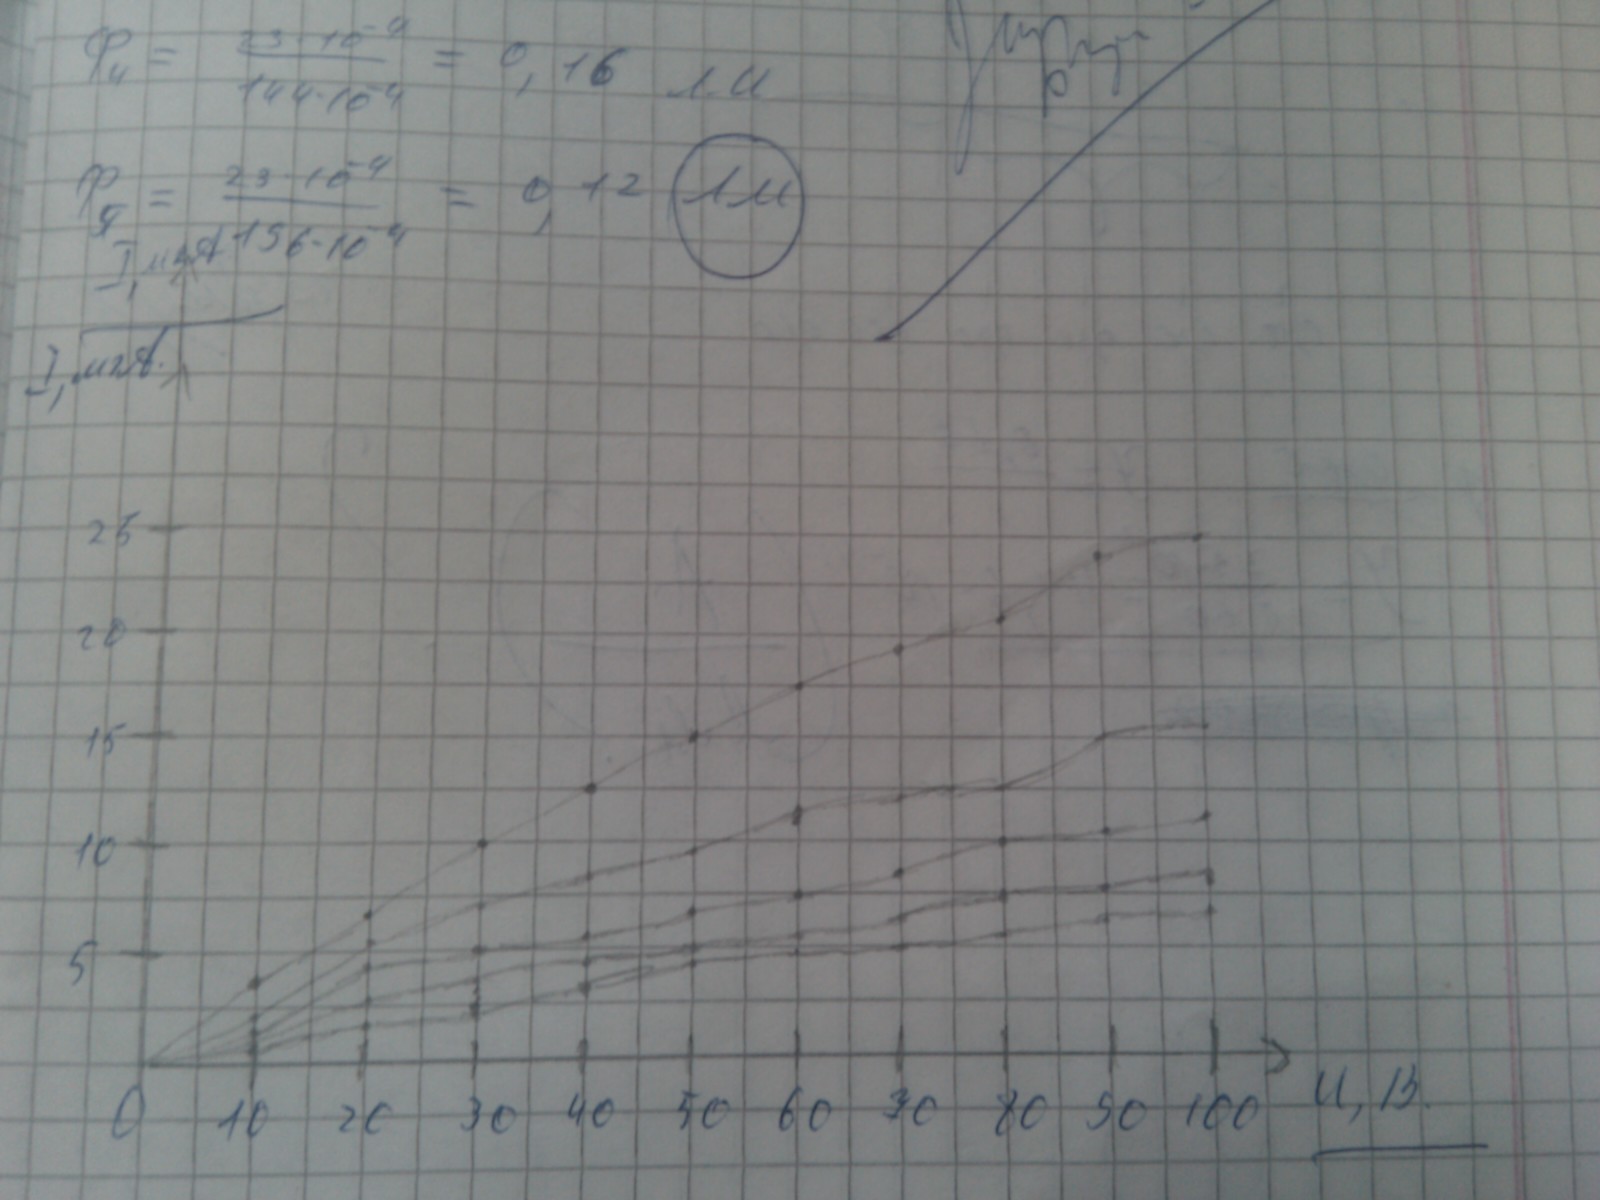 Ф₄ = 23·10⁻⁴ / 144·10⁻⁴ = 0,16 лм
Ф₅ = 23·10⁻⁴ / 196·10⁻⁴ = 0,12 лм
I, мкА
I, мкА.
25
20
15
10
5
0 10 20 30 40 50 60 70 80 90 100 U, В.